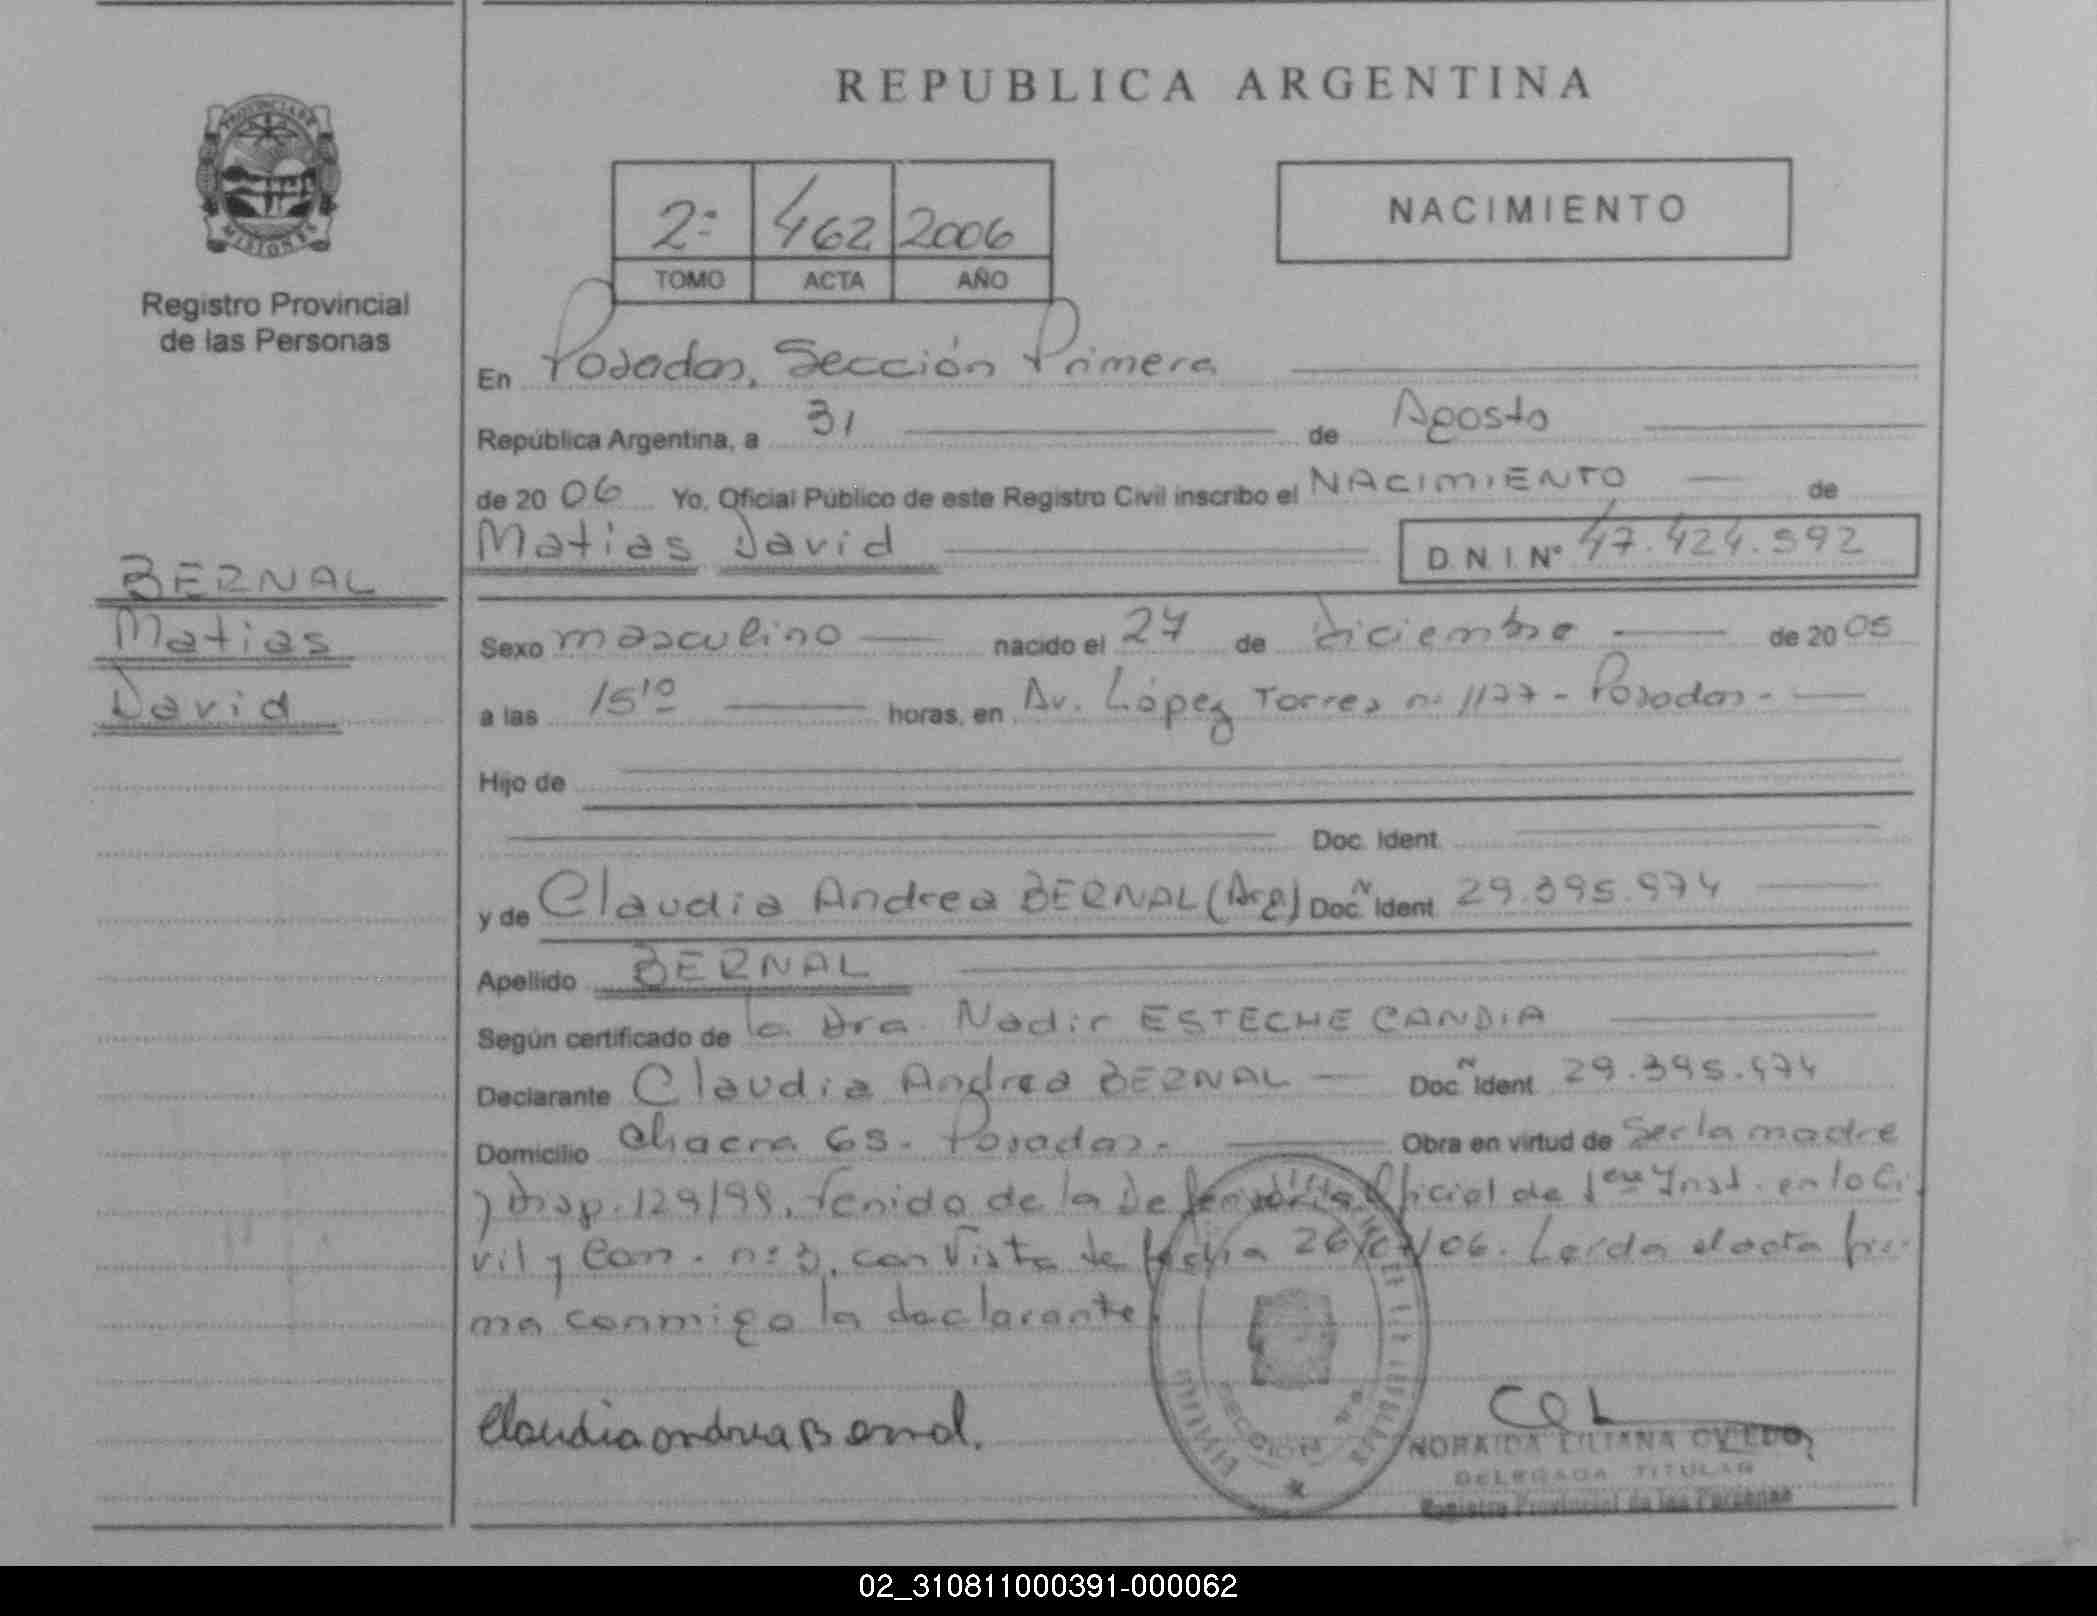 REPUBLICA ARGENTINA
PROVINCIA DE
MISIONES
Registro Provincial
de las Personas
2º 462 2006
TOMO ACTA AÑO
NACIMIENTO
En Posadas, Sección Primera
República Argentina, a 31 de Agosto
de 2006 Yo, Oficial Público de este Registro Civil inscribo el NACIMIENTO de
Matias David D.N.I. Nº 47.424.592
BERNAL
Matias
David
Sexo masculino nacido el 27 de diciembre de 2005
a las 15¹⁰ horas, en Av. López Torres nº 1177 - Posadas -
Hijo de
Doc. Ident.
y de Claudia Andrea BERNAL (Arg) Doc. Ident. 29.395.974
Apellido BERNAL
Según certificado de la Dra. Nadir ESTECHE CANDIA
Declarante Claudia Andrea BERNAL Doc. Ident. 29.395.974
Domicilio Chacra 65. Posadas.- Obra en virtud de Ser la madre
y Disp. 129/99, Venido de la Defensoría Oficial de 1era Inst. en lo Ci
vil y Com. nº 3, con Vista de fecha 26/ /06. Leída el acta fir
ma conmigo la declarante
Claudia andrea Bernal.
NORAIDA LILIANA OVIEDO
DELEGADA TITULAR
Registro Provincial de las Personas
02_310811000391-000062